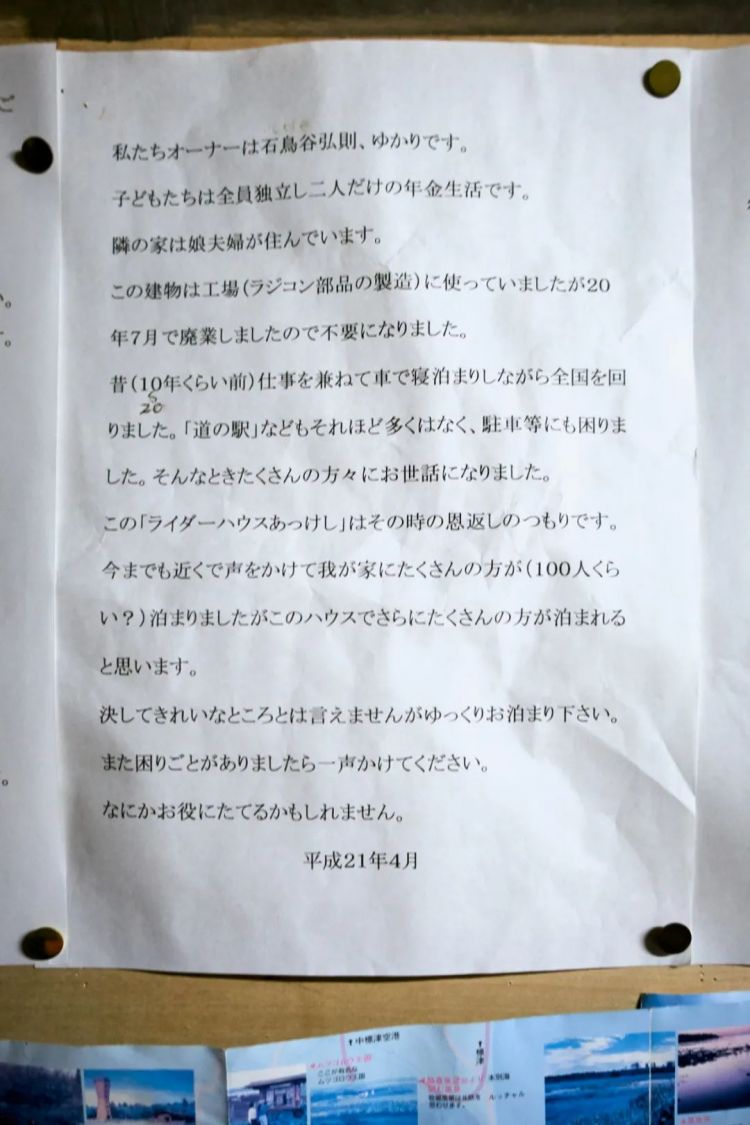 私たちオーナーは石鳥谷弘則、ゆかりです。
子どもたちは全員独立し二人だけの年金生活です。
隣の家は娘夫婦が住んでいます。
この建物は工場(ラジコン部品の製造)に使っていましたが20
年7月で廃業しましたので不要になりました。
昔(10年くらい前)仕事を兼ねて車で寝泊まりしながら全国を回
20
りました。「道の駅」などもそれほど多くはなく、駐車等にも困りま
した。そんなときたくさんの方々にお世話になりました。
この「ライダーハウスあっけし」はその時の恩返しのつもりです。
今までも近くで声をかけて我が家にたくさんの方が(100人くら
い?)泊まりましたがこのハウスでさらにたくさんの方が泊まれる
と思います。
決してきれいなところとは言えませんがゆっくりお泊まり下さい。
また困りごとがありましたら一声かけてください。
なにかお役にたてるかもしれません。
平成21年4月
↑中標津空港
↑標津
ムツゴロウ王国